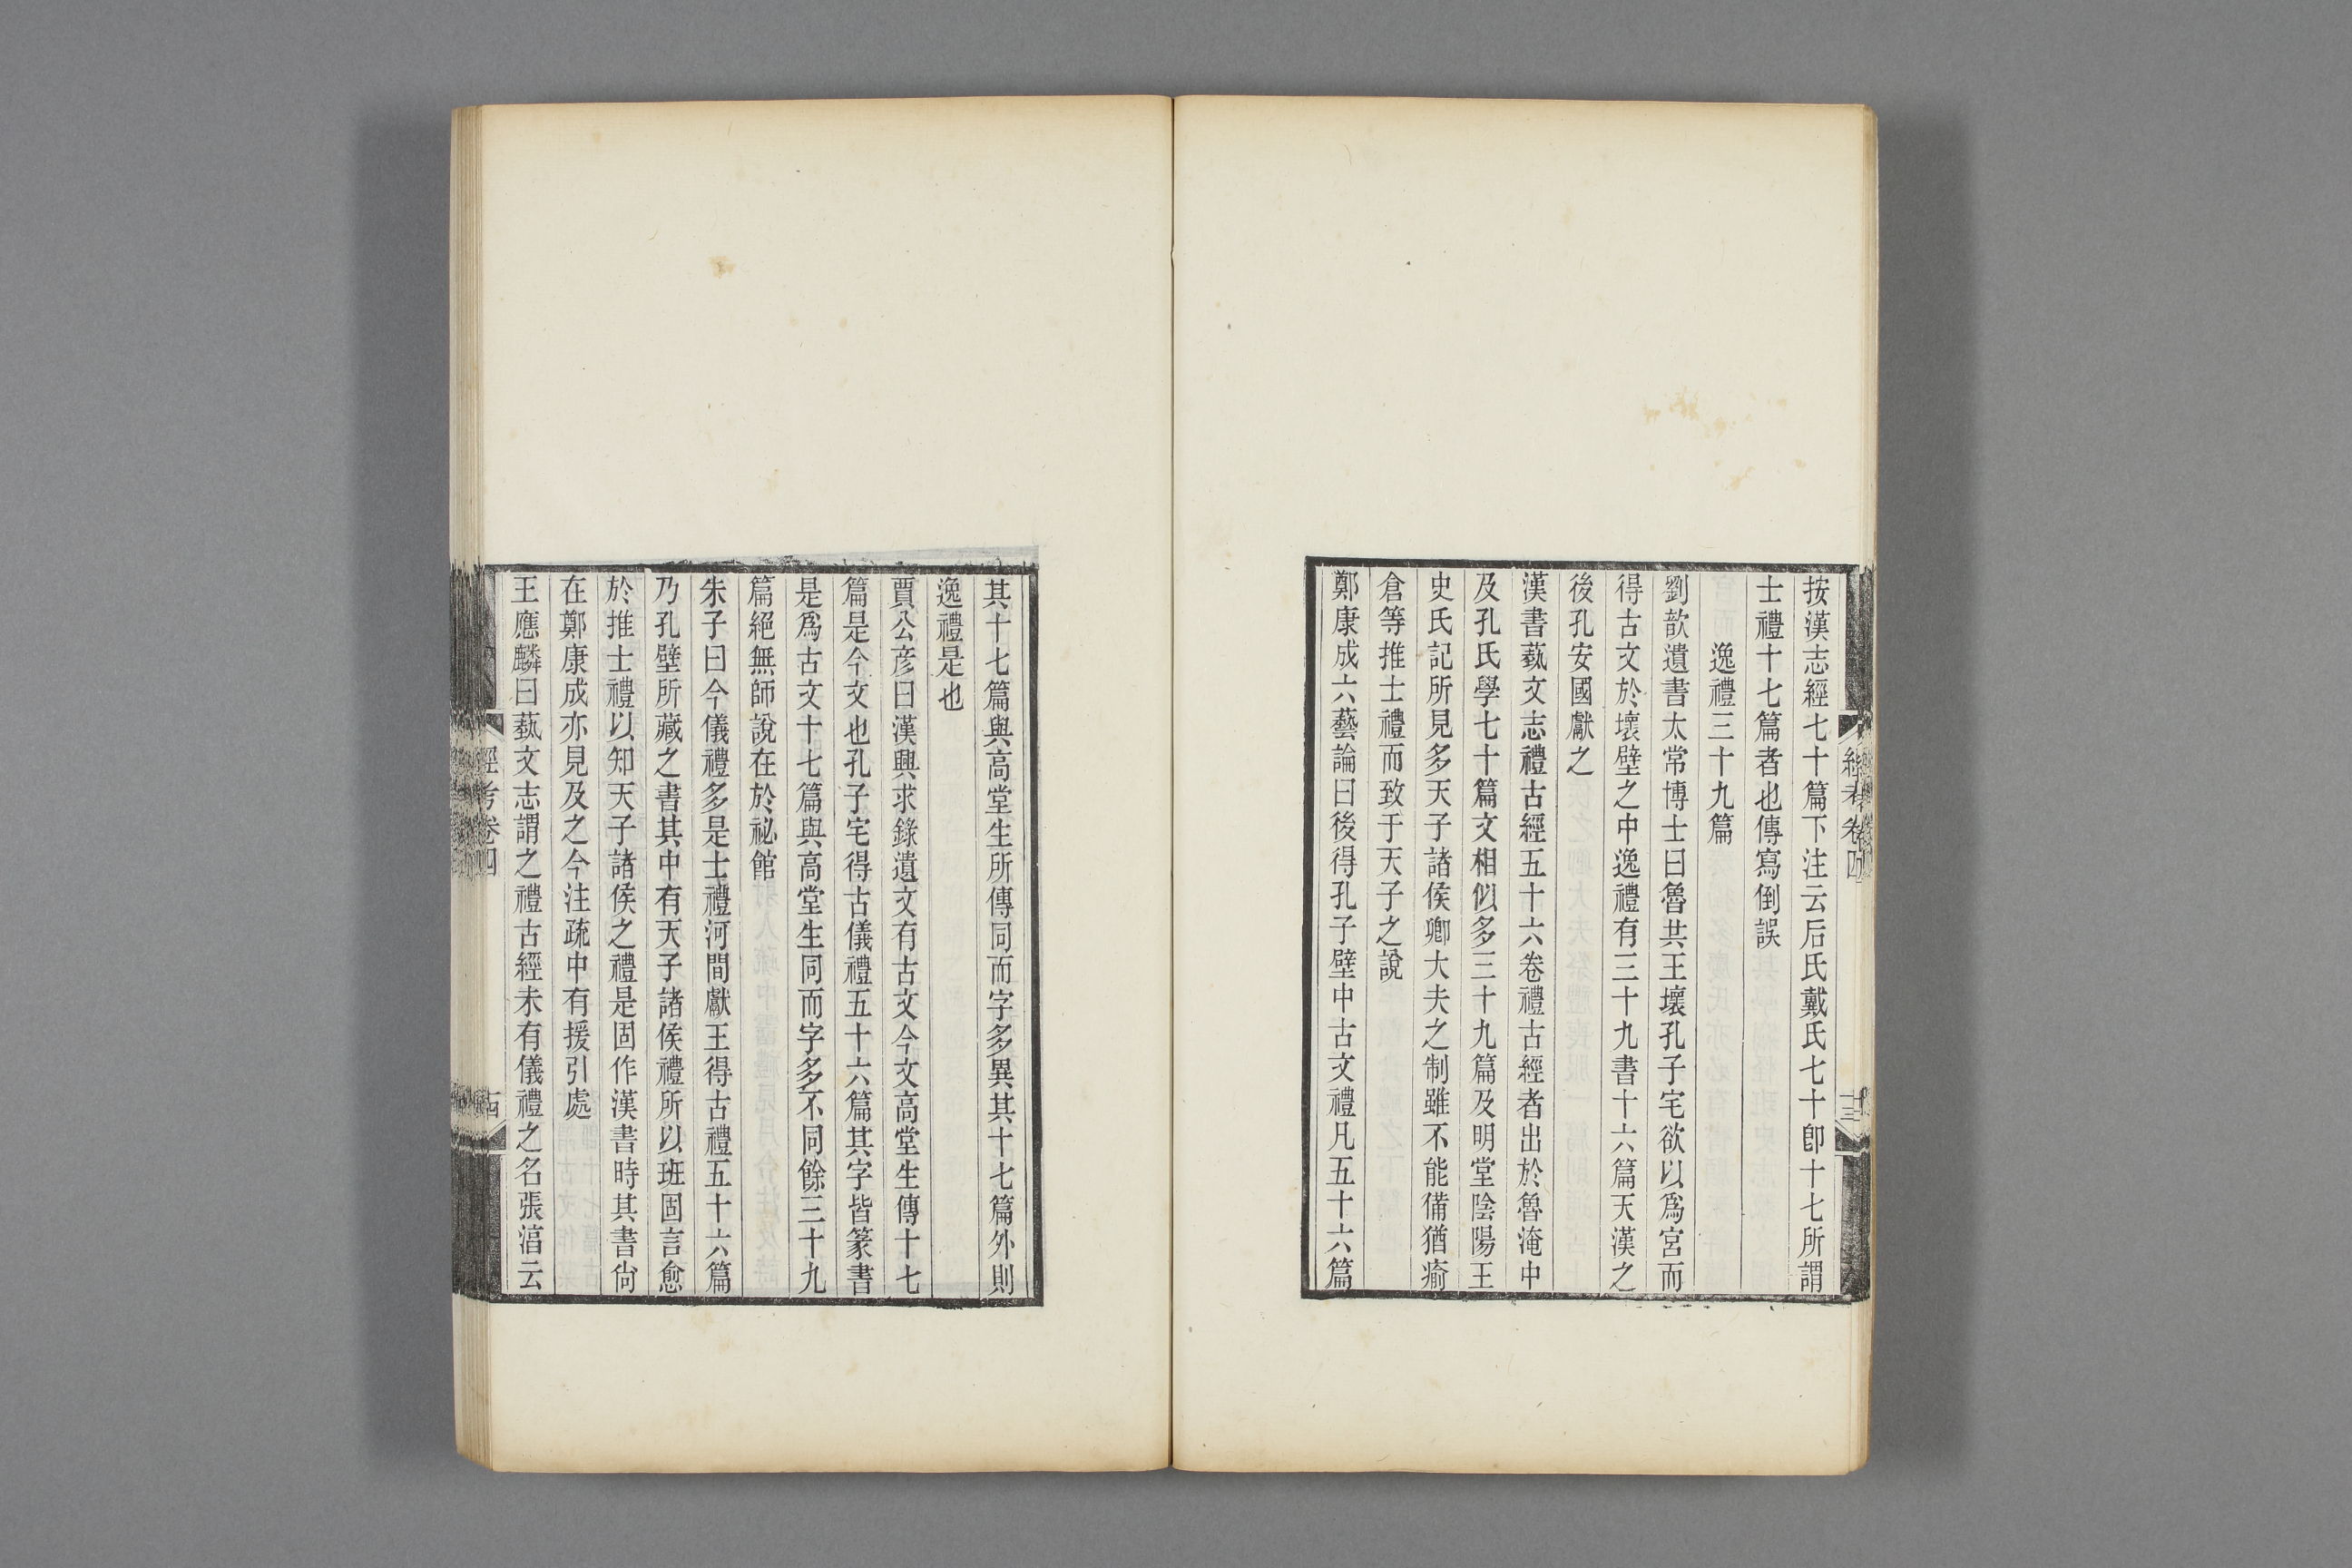 按漢志經七十篇下注云后氏戴氏七十卽十七所謂
士禮十七篇者也傳寫倒誤
逸禮三十九篇
劉歆遺書太常博士曰魯共王壞孔子宅欲以爲宮而
得古文於壞壁之中逸禮有三十九書十六篇天漢之
後孔安國獻之
漢書蓺文志禮古經五十六卷禮古經者出於魯淹中
及孔氏學七十篇文相似多三十九篇及明堂陰陽王
史氏記所見多天子諸侯卿大夫之制雖不能備猶瘉
倉等推士禮而致于天子之說
鄭康成六藝論曰後得孔子壁中古文禮凡五十六篇
經考卷四
十三
其十七篇與高堂生所傳同而字多異其十七篇外則
逸禮是也
賈公彦曰漢興求錄遺文有古文今文高堂生傳十七
篇是今文也孔子宅得古儀禮五十六篇其字皆篆書
是爲古文十七篇與高堂生同而字多不同餘三十九
篇絕無師說在於祕館
朱子曰今儀禮多是士禮河間獻王得古禮五十六篇
乃孔壁所藏之書其中有天子諸侯禮所以班固言愈
於推士禮以知天子諸侯之禮是固作漢書時其書尙
在鄭康成亦見及之今注疏中有援引處
王應麟曰蓺文志謂之禮古經未有儀禮之名張淐云
經考卷四
十四